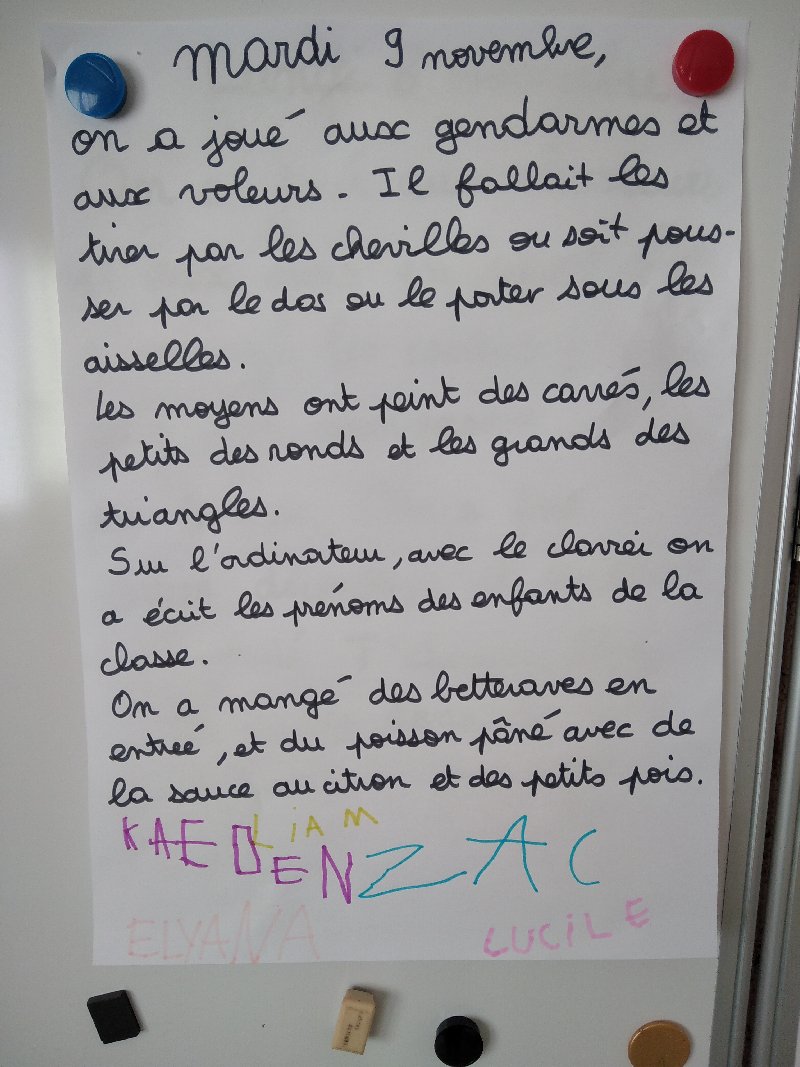 mardi 9 novembre,
on a joué aux gendarmes et
aux voleurs. Il fallait les
tirer par les chevilles ou soit pous-
ser par le dos ou le porter sous les
aisselles.
Les moyens ont peint des carrés, les
petits des ronds et les grands des
triangles.
Sur l'ordinateur, avec le clavier on
a écrit les prénoms des enfants de la
classe.
On a mangé des betteraves en
entreé, et du poisson pâné avec de
la sauce au citron et des petits pois.
LIAM
KAEDEN ZAC
ELYANA LUCILE